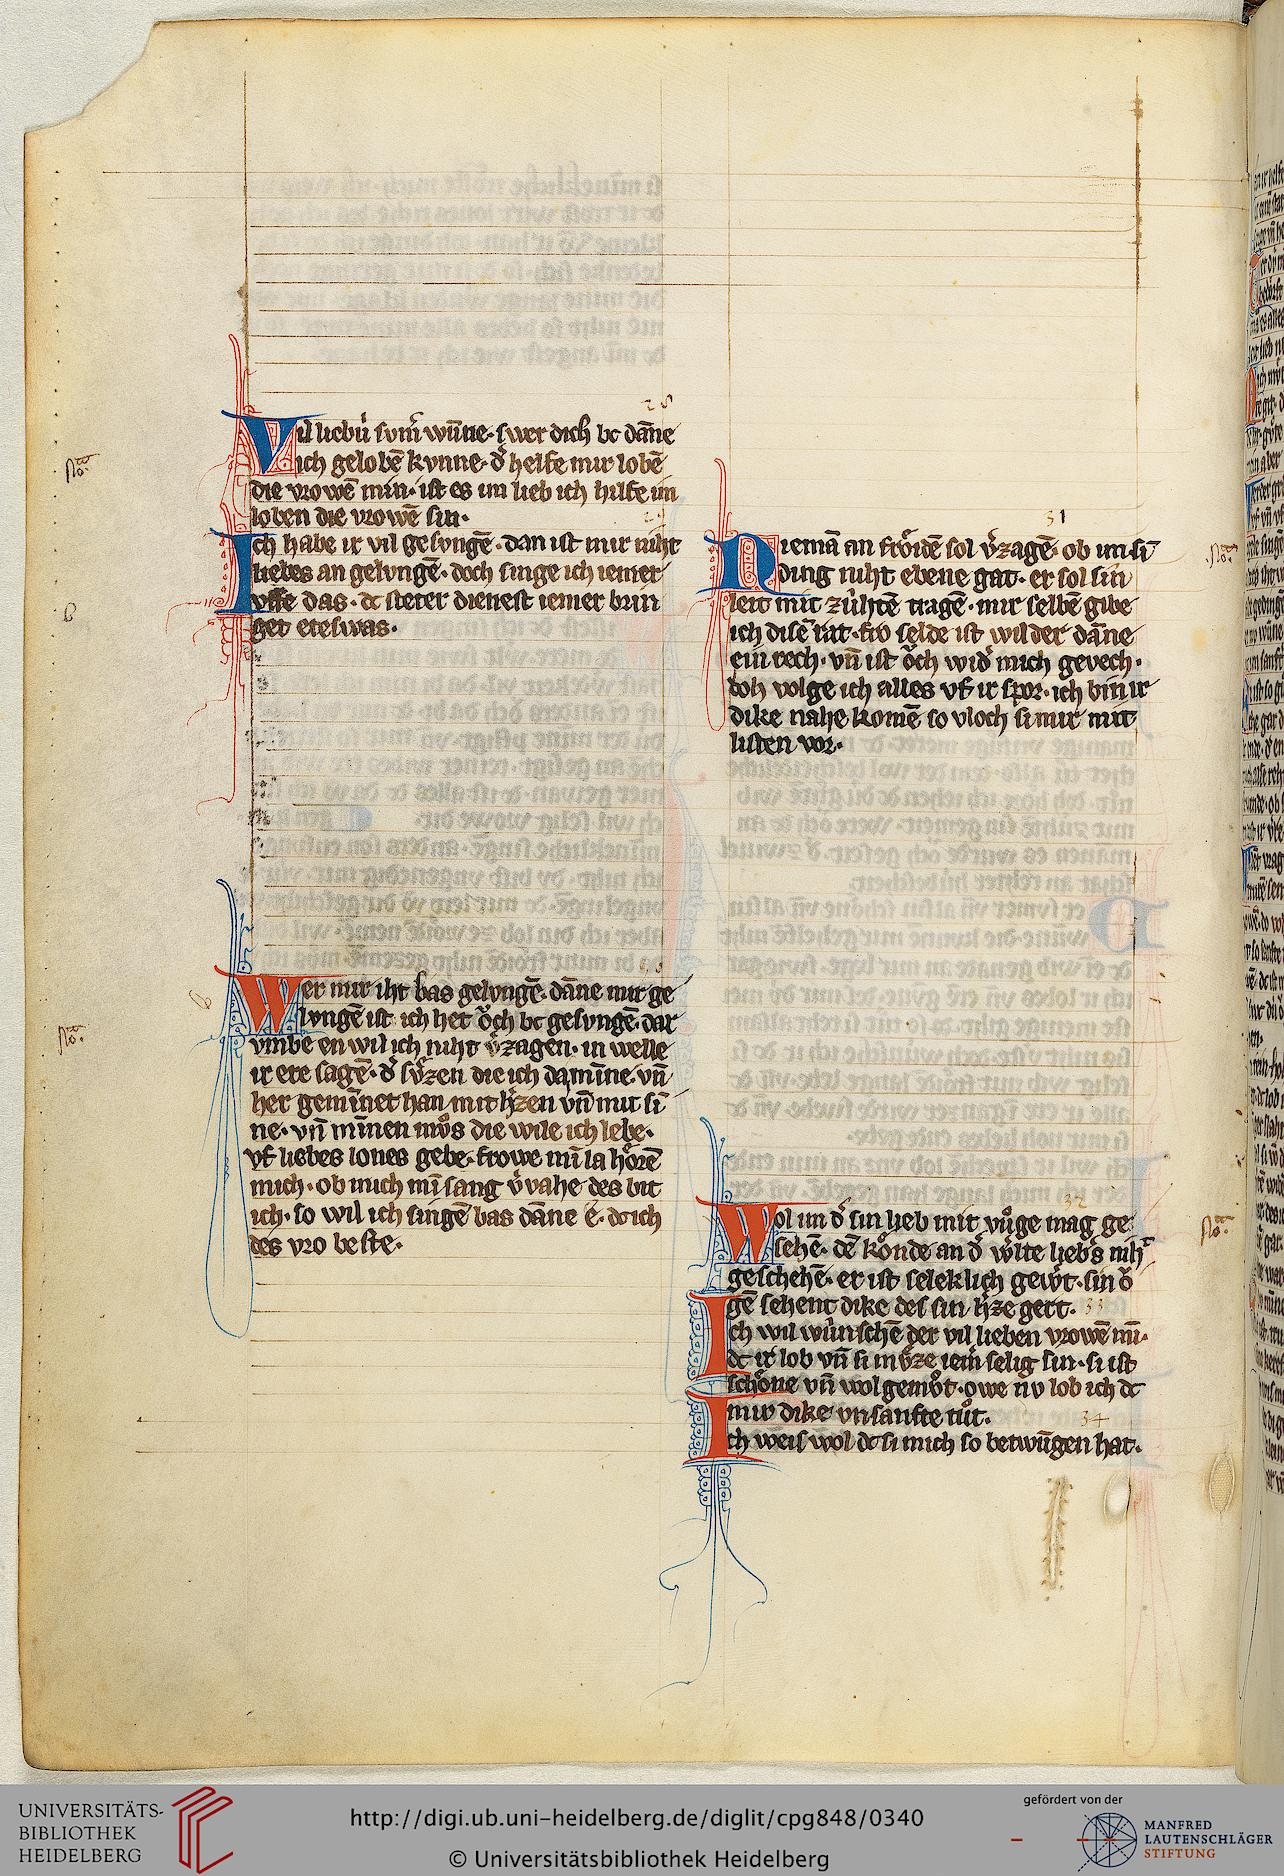 28
Vil liebu̍ ſvm̍ wu̅ne· ſwer dich bc da̅ne
ich gelobe̅ kvnne· d̍ helfe mir lobe̅
die vrowe̅ min· iſt es im lieb ich hilfe im
loben die vrowe̅ ſin·
29
Ich habe ir vil geſvnge̅· dan iſt mir niht
liebes an gelvnge̅· doch ſinge ich iemer
vffe das· dc ſteter dieneſt iemer brin
get eteſwas·
Wer mir iht bas gelvnge̅· da̅ne mir ge
lvnge̅ iſt ich het o̍ch bc geſvnge̅· dar
vmbe en wil ich niht v̍zagen· in welle
ir ere ſage̅· d̍ ſv̍zen die ich da mi̅ne· vn̅
her gemi̅net han mit h̍zen vn̅ mit ſi̅
ne· vn̅ mi̅nen mv̊s die wile ich lebe·
vf liebes lones gebe· frowe mi̅ la ho̍re̅
mich· ob mich mi̅ ſang v̍vahe des bit
ich· ſo wil ich ſinge̅ bas da̅ne e· dc ich
des vro beſte·
31
Niema̅ an fro̍ide̅ ſol v̍zage̅· ob im ſi̅
ding niht ebene gat· er ſol ſin
leit mit zu̍hte̅ trage̅· mir ſelbe̅ gibe
ich diſe̅ rat· fro ſelde iſt wilder da̅ne
ein rech· vn̅ iſt o̍ch wid̍ mich gevech·
doh volge ich alles vf ir ſpor· ich bin ir
dike nahe kome̅ ſo vloch ſi mir mit
liſten vor·
32
Wol im d̍ ſin lieb mit vu̍ge mag ge
ſehe̅· de̅ ko̍nde an d̍ w̍lte lieb̍s niht
geſchehe̅· er iſt ſeleklich gew̍t· ſin o̍
ge̅ ſehent dike deſ ſin h̍ze gert· 33
Ich wil wu̍nſche̅ der vil lieben vrowe̅ mi̅·
dc ir lob vn̅ ſi mv̍ze iem̍ ſelig ſin· ſi iſt
ſcho̍ne vn̅ wol gemv̊t· owe nv lob ich dc
mir dike vnſanfte tůt· 34
Ich weis wol dc ſi mich ſo betwu̅gen hat·
UNIVERSITÄTS-
BIBLIOTHEK
HEIDELBERG
http://digi.ub.uni-heidelberg.de/diglit/cpg848/0340
© Universitätsbibliothek Heidelberg
gefördert von der
MANFRED
LAUTENSCHLÄGER
STIFTUNG